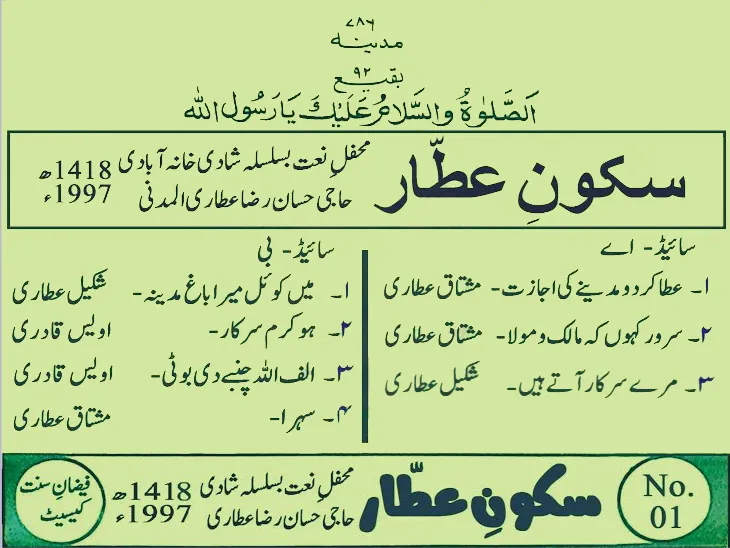 ۷۸۶
مدینہ
۹۲
بقیع
اَلصَّلٰوۃُ وَالسَّلَامُ عَلَیْكَ یَارَسُوْلَ اللّٰه
سکونِ عطّار
محفلِ نعت بسلسلہ شادی خانہ آبادی
حاجی حسان رضا عطاری المدنی
1418ھ
1997ء
سائیڈ- اے
۱۔ عطا کر دو مدینے کی اجازت- مشتاق عطاری
۲۔ سرور کہوں کہ مالک و مولا- مشتاق عطاری
۳۔ مرے سرکار آتے ہیں- شکیل عطاری
سائیڈ- بی
۱۔ میں کوئل میرا باغ مدینہ- شکیل عطاری
۲۔ ہو کرم سرکار- اویس قادری
۳۔ الف اللہ چنبے دی بوٹی- اویس قادری
۴۔ سہرا- مشتاق عطاری
No.
01
سکونِ عطّار
محفلِ نعت بسلسلہ شادی
حاجی حسان رضا عطاری
1418ھ
1997ء
فیضانِ سنت
کیسیٹ